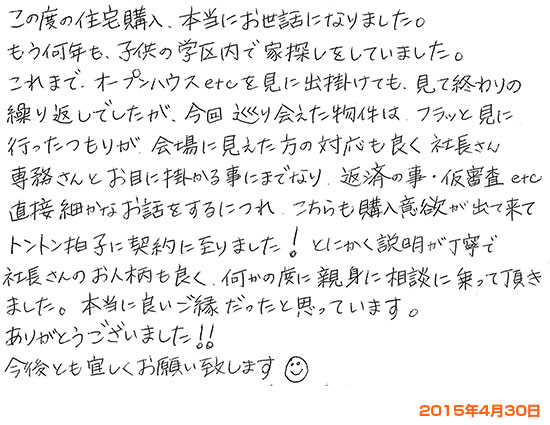 この度の住宅購入、本当にお世話になりました。
もう何年も、子供の学区内で家探しをしていました。
これまで、オープンハウスetcを見に出掛けても、見て終わりの
繰り返しでしたが、今回巡り会えた物件は、フラッと見に
行ったつもりが、会場に見えた方の対応も良く社長さん
専務さんとお目に掛かる事にまでなり、返済の事・仮審査etc
直接細かなお話をするにつれ、こちらも購入意欲が出て来て
トントン拍子に契約に至りました！とにかく説明が丁寧で
社長さんのお人柄も良く、何かの度に親身に相談に乗って頂き
ました。本当に良いご縁だったと思っています。
ありがとうございました！！
今後とも宜しくお願い致します☺
2015年4月30日